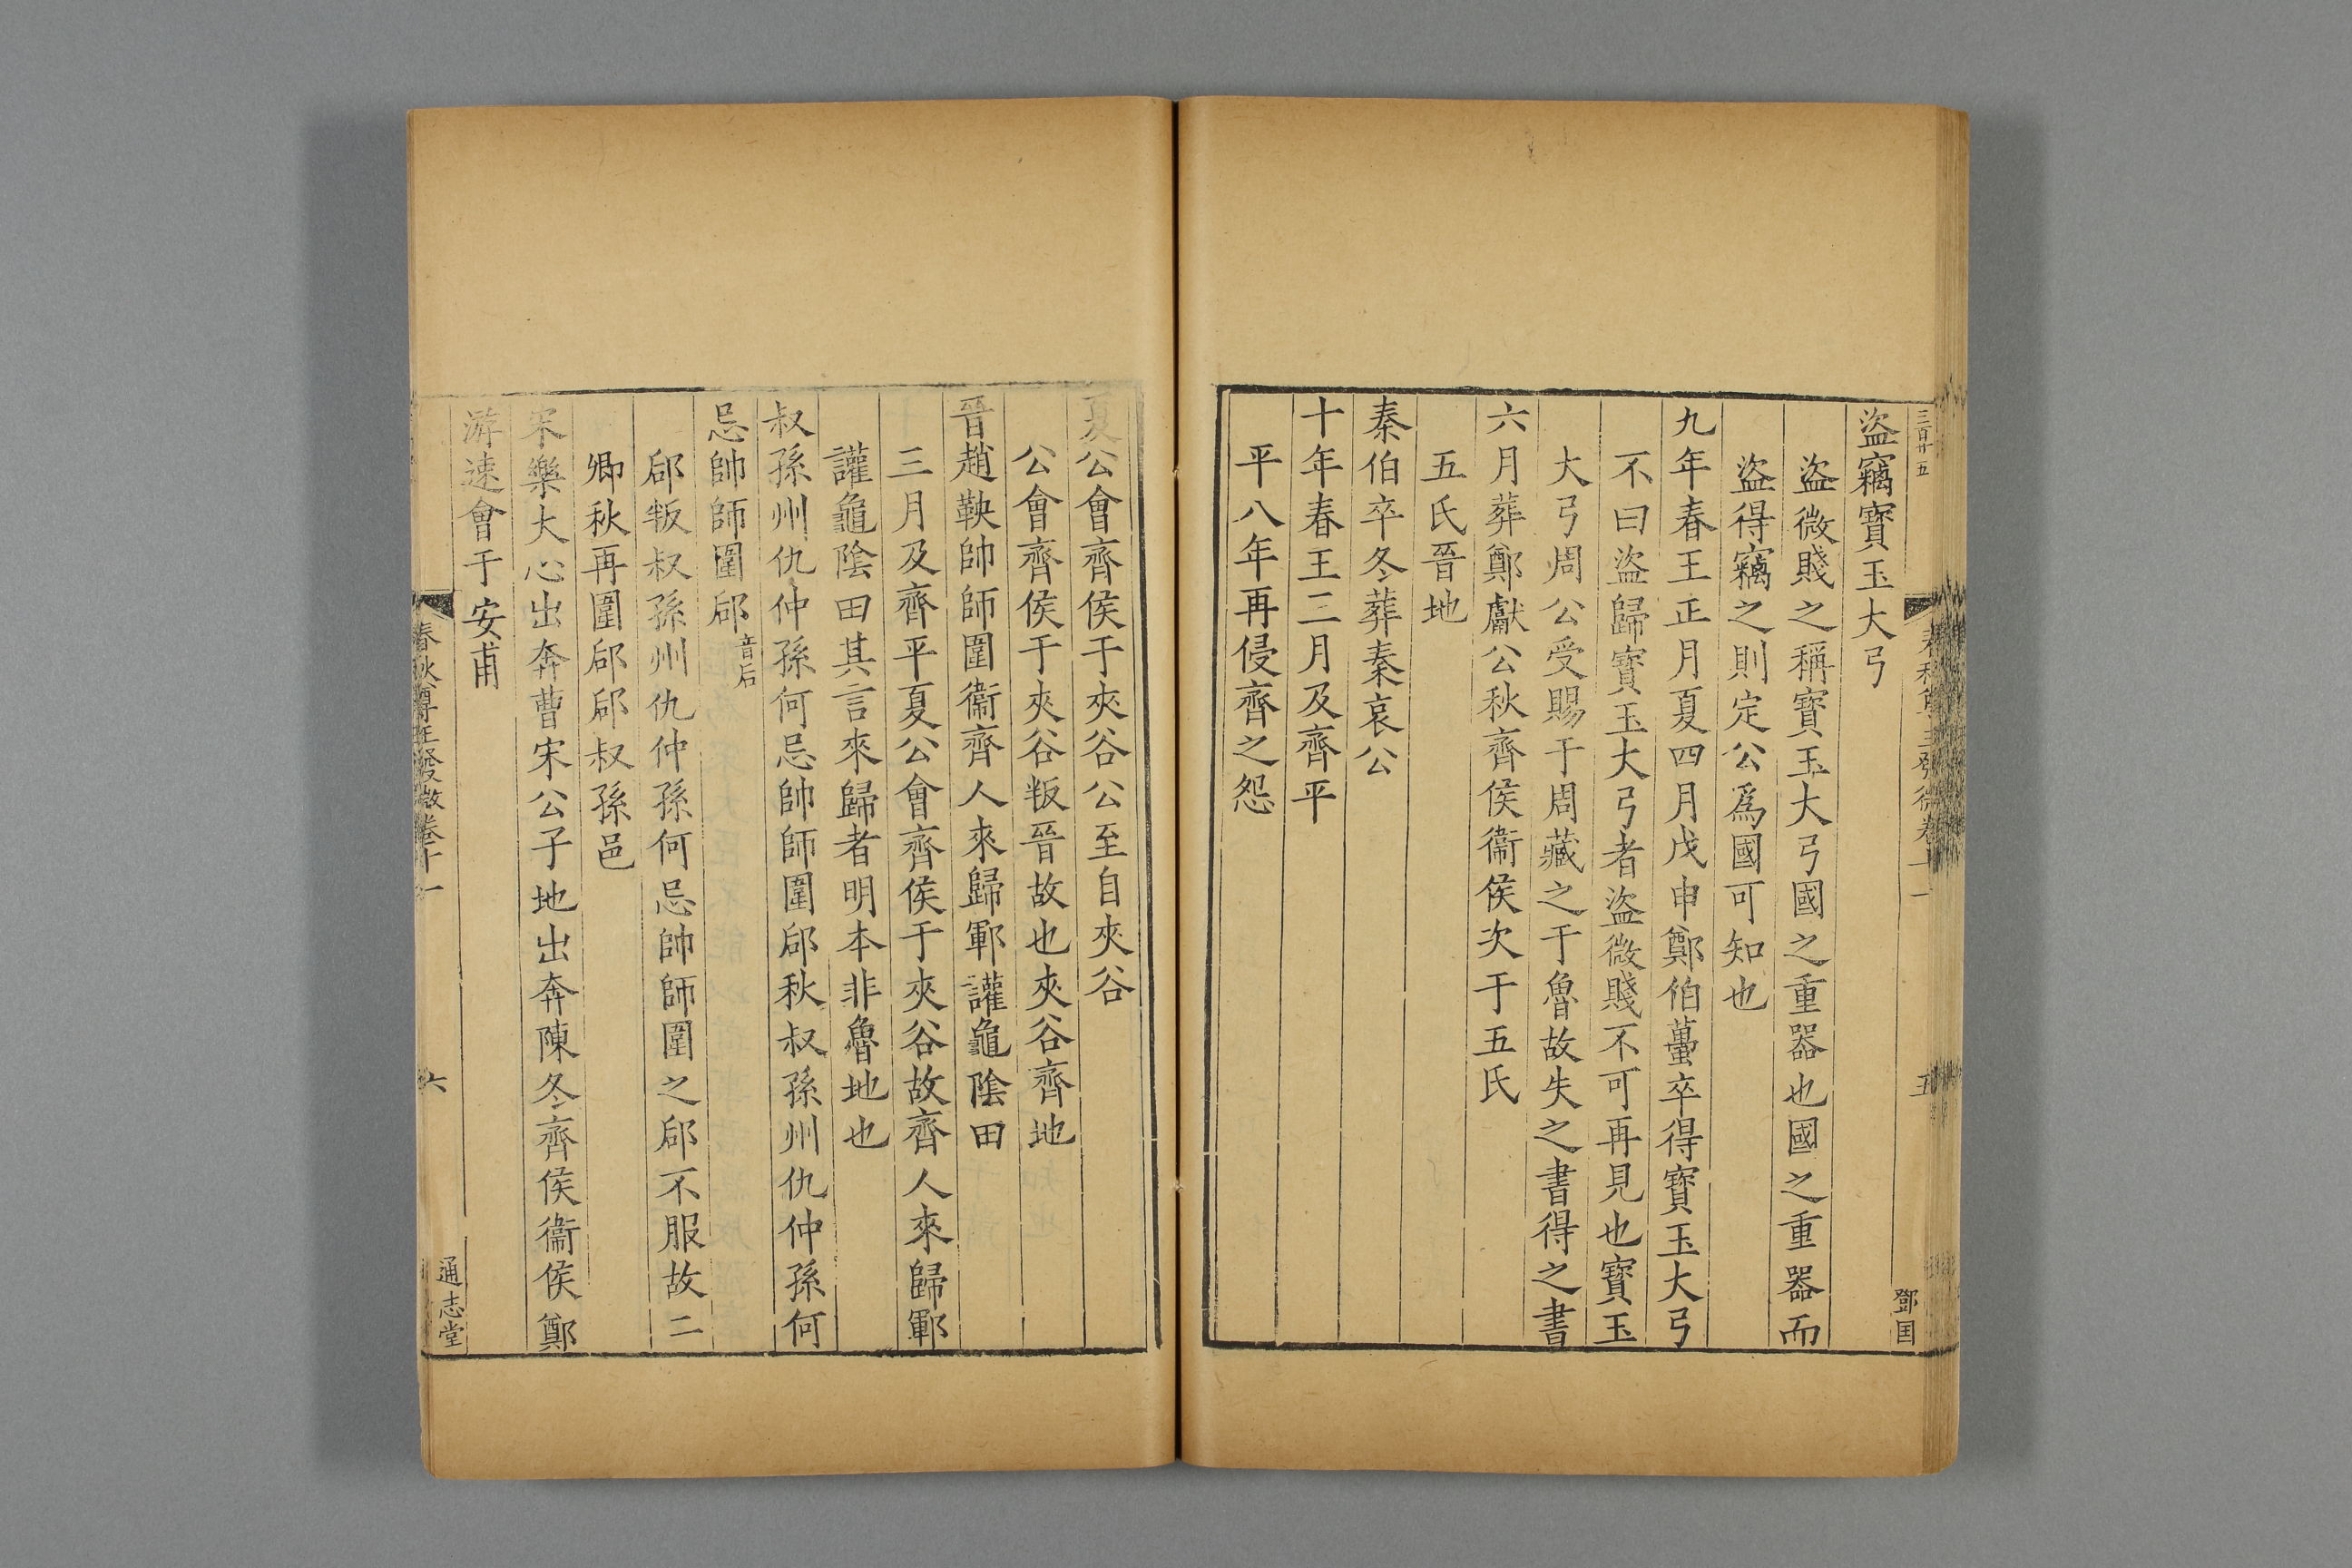 三百廿五
盜竊寶玉大弓
盜微賤之稱寶玉大弓國之重器也國之重器而
盜得竊之則定公爲國可知也
九年春王正月夏四月戊申鄭伯蠆卒得寶玉大弓
不曰盜歸寶玉大弓者盜微賤不可再見也寶玉
大弓周公受賜于周藏之于魯故失之書得之書
六月葬鄭獻公秋齊侯衞侯次于五氏
五氏晉地
秦伯卒冬葬秦哀公
十年春王三月及齊平
平八年再侵齊之怨
五
夏公會齊侯于夾谷公至自夾谷
公會齊侯于夾谷叛晉故也夾谷齊地
晉趙鞅帥師圍衞齊人來歸鄆讙龜陰田
三月及齊平夏公會齊侯于夾谷故齊人來歸鄆
讙龜陰田其言來歸者明本非魯地也
叔孫州仇仲孫何忌帥師圍郈秋叔孫州仇仲孫何
忌帥師圍郈音后
郈叛叔孫州仇仲孫何忌帥師圍之郈不服故二
卿秋再圍郈郈叔孫邑
宋樂大心出奔曹宋公子地出奔陳冬齊侯衞侯鄭
游速會于安甫
春秋尊王發微卷十一
六
通志堂